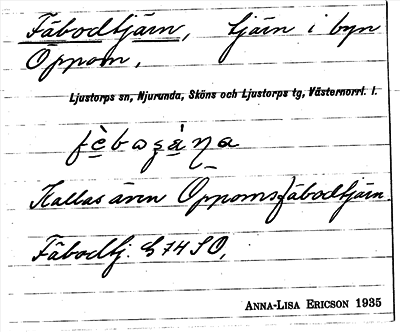 Fäbodtjärn, tjärn i byn
Oppom,
Ljustorps sn, Njurunda, Sköns och Ljustorps tg, Västernorrl. l.
Kallas även Oppomsfäbodtjärn.
Fäbodtj. G 74 SO,
ANNA-LISA ERICSON 1935